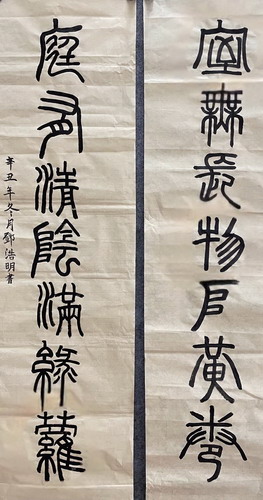 室無長物黃卷
庭有清陰滿綠蘿
辛丑年冬月鄧浩明書